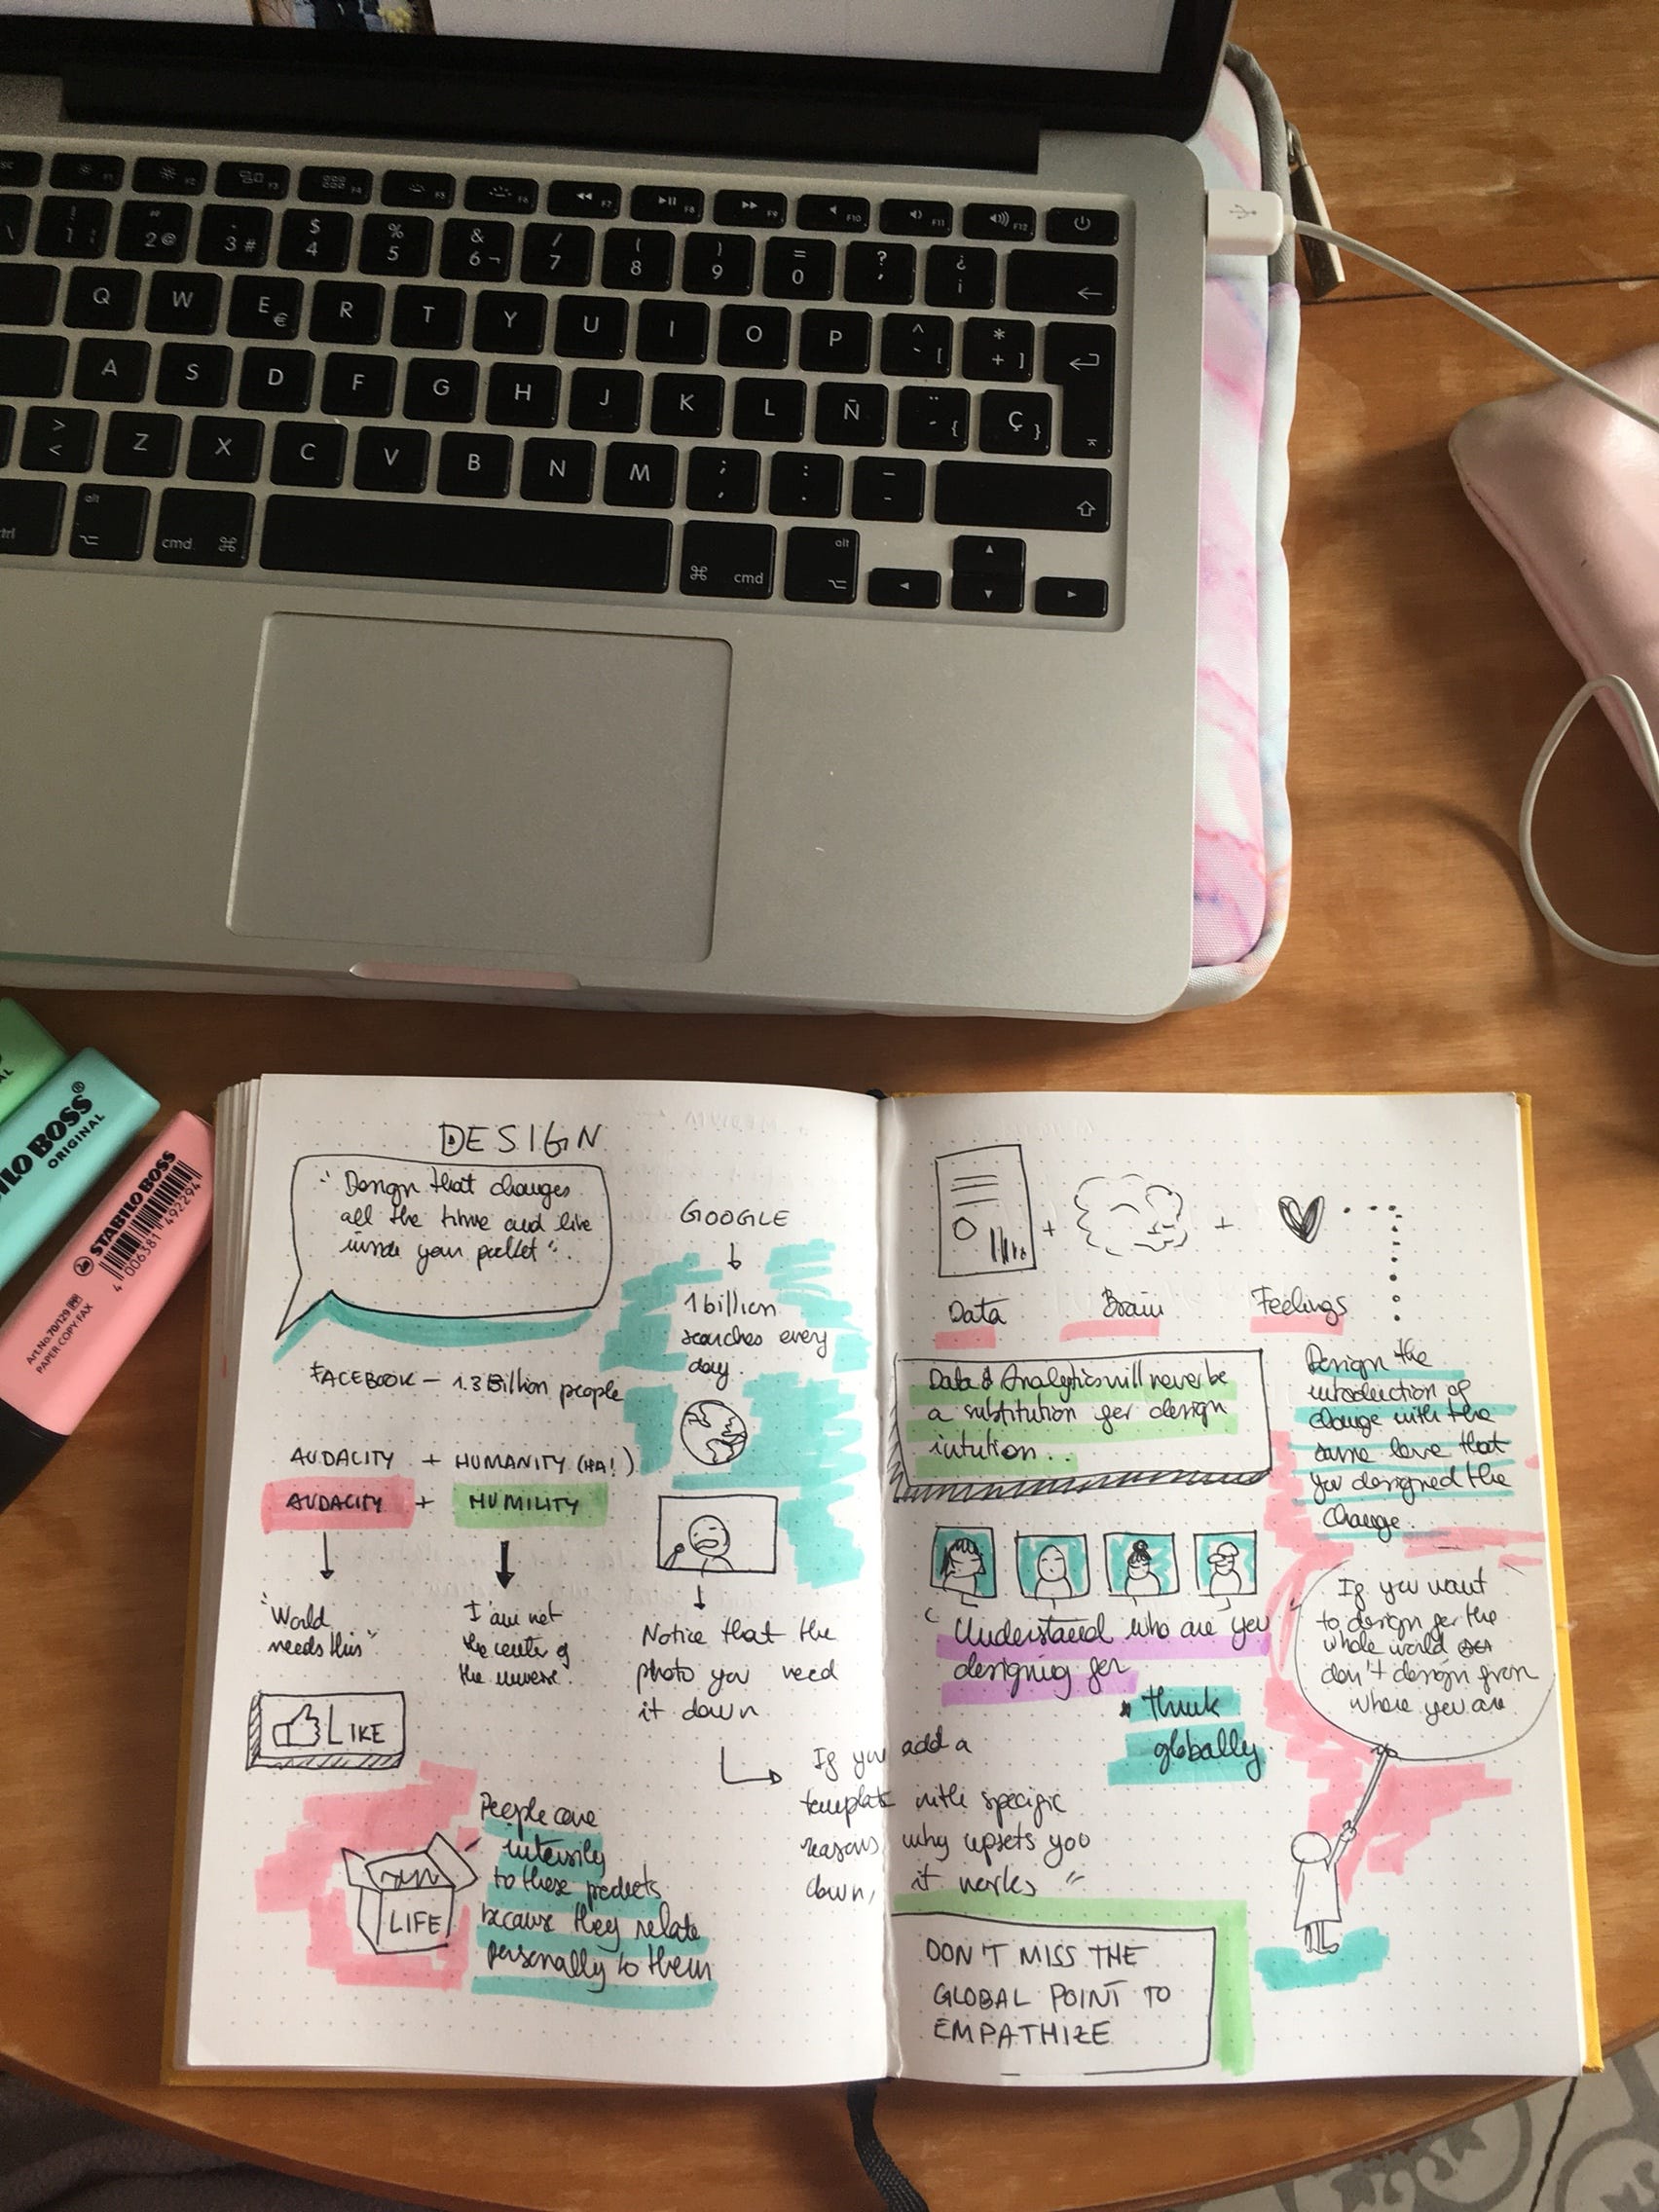 sc
F1
F2
F3
F4
F5
F6
F7
F8
F9
F10
F11
F12
\
! 1 |
" 2 @
· 3 #
$ 4
% 5
& 6 ¬
/ 7
( 8
) 9
= 0
? '
¿ ¡
Q W E € R T Y U I O P ^ ` [ * + ]
A S D F G H J K L Ñ ¨ ´ { Ç }
> < Z X C V B N M ; , : . _ -
trl alt cmd ⌘ ⌘ cmd alt
AL
LO BOSS®
ORIGINAL
STABILO BOSS
4 006381 492294
Art.No. 70/129
PAPER·COPY·FAX
DESIGN
"Design that changes
all the time and live
inside your pocket".
FACEBOOK – 1.3 Billion people
AUDACITY + HUMANITY (HA!)
AUDACITY + HUMILITY
"World
needs this"
I am not
the center of
the universe.
LIKE
LIFE
People care
intensily
to these products
because they relate
personally to them
GOOGLE
1 billion
searches every
day.
Notice that the
photo you need
it down
If you add a
template with specific
reasons why upsets you
down, it works "
Data + Brain + Feelings
Data & Analytics will never be
a substitution for design
intution...
Design the
introduction of
change with the
same love that
you designed the
change.
"Understand who are you
designing for"
think
globally
If you want
to design for the
whole world
don't design from
where you are
DON'T MISS THE
GLOBAL POINT TO
EMPATHIZE